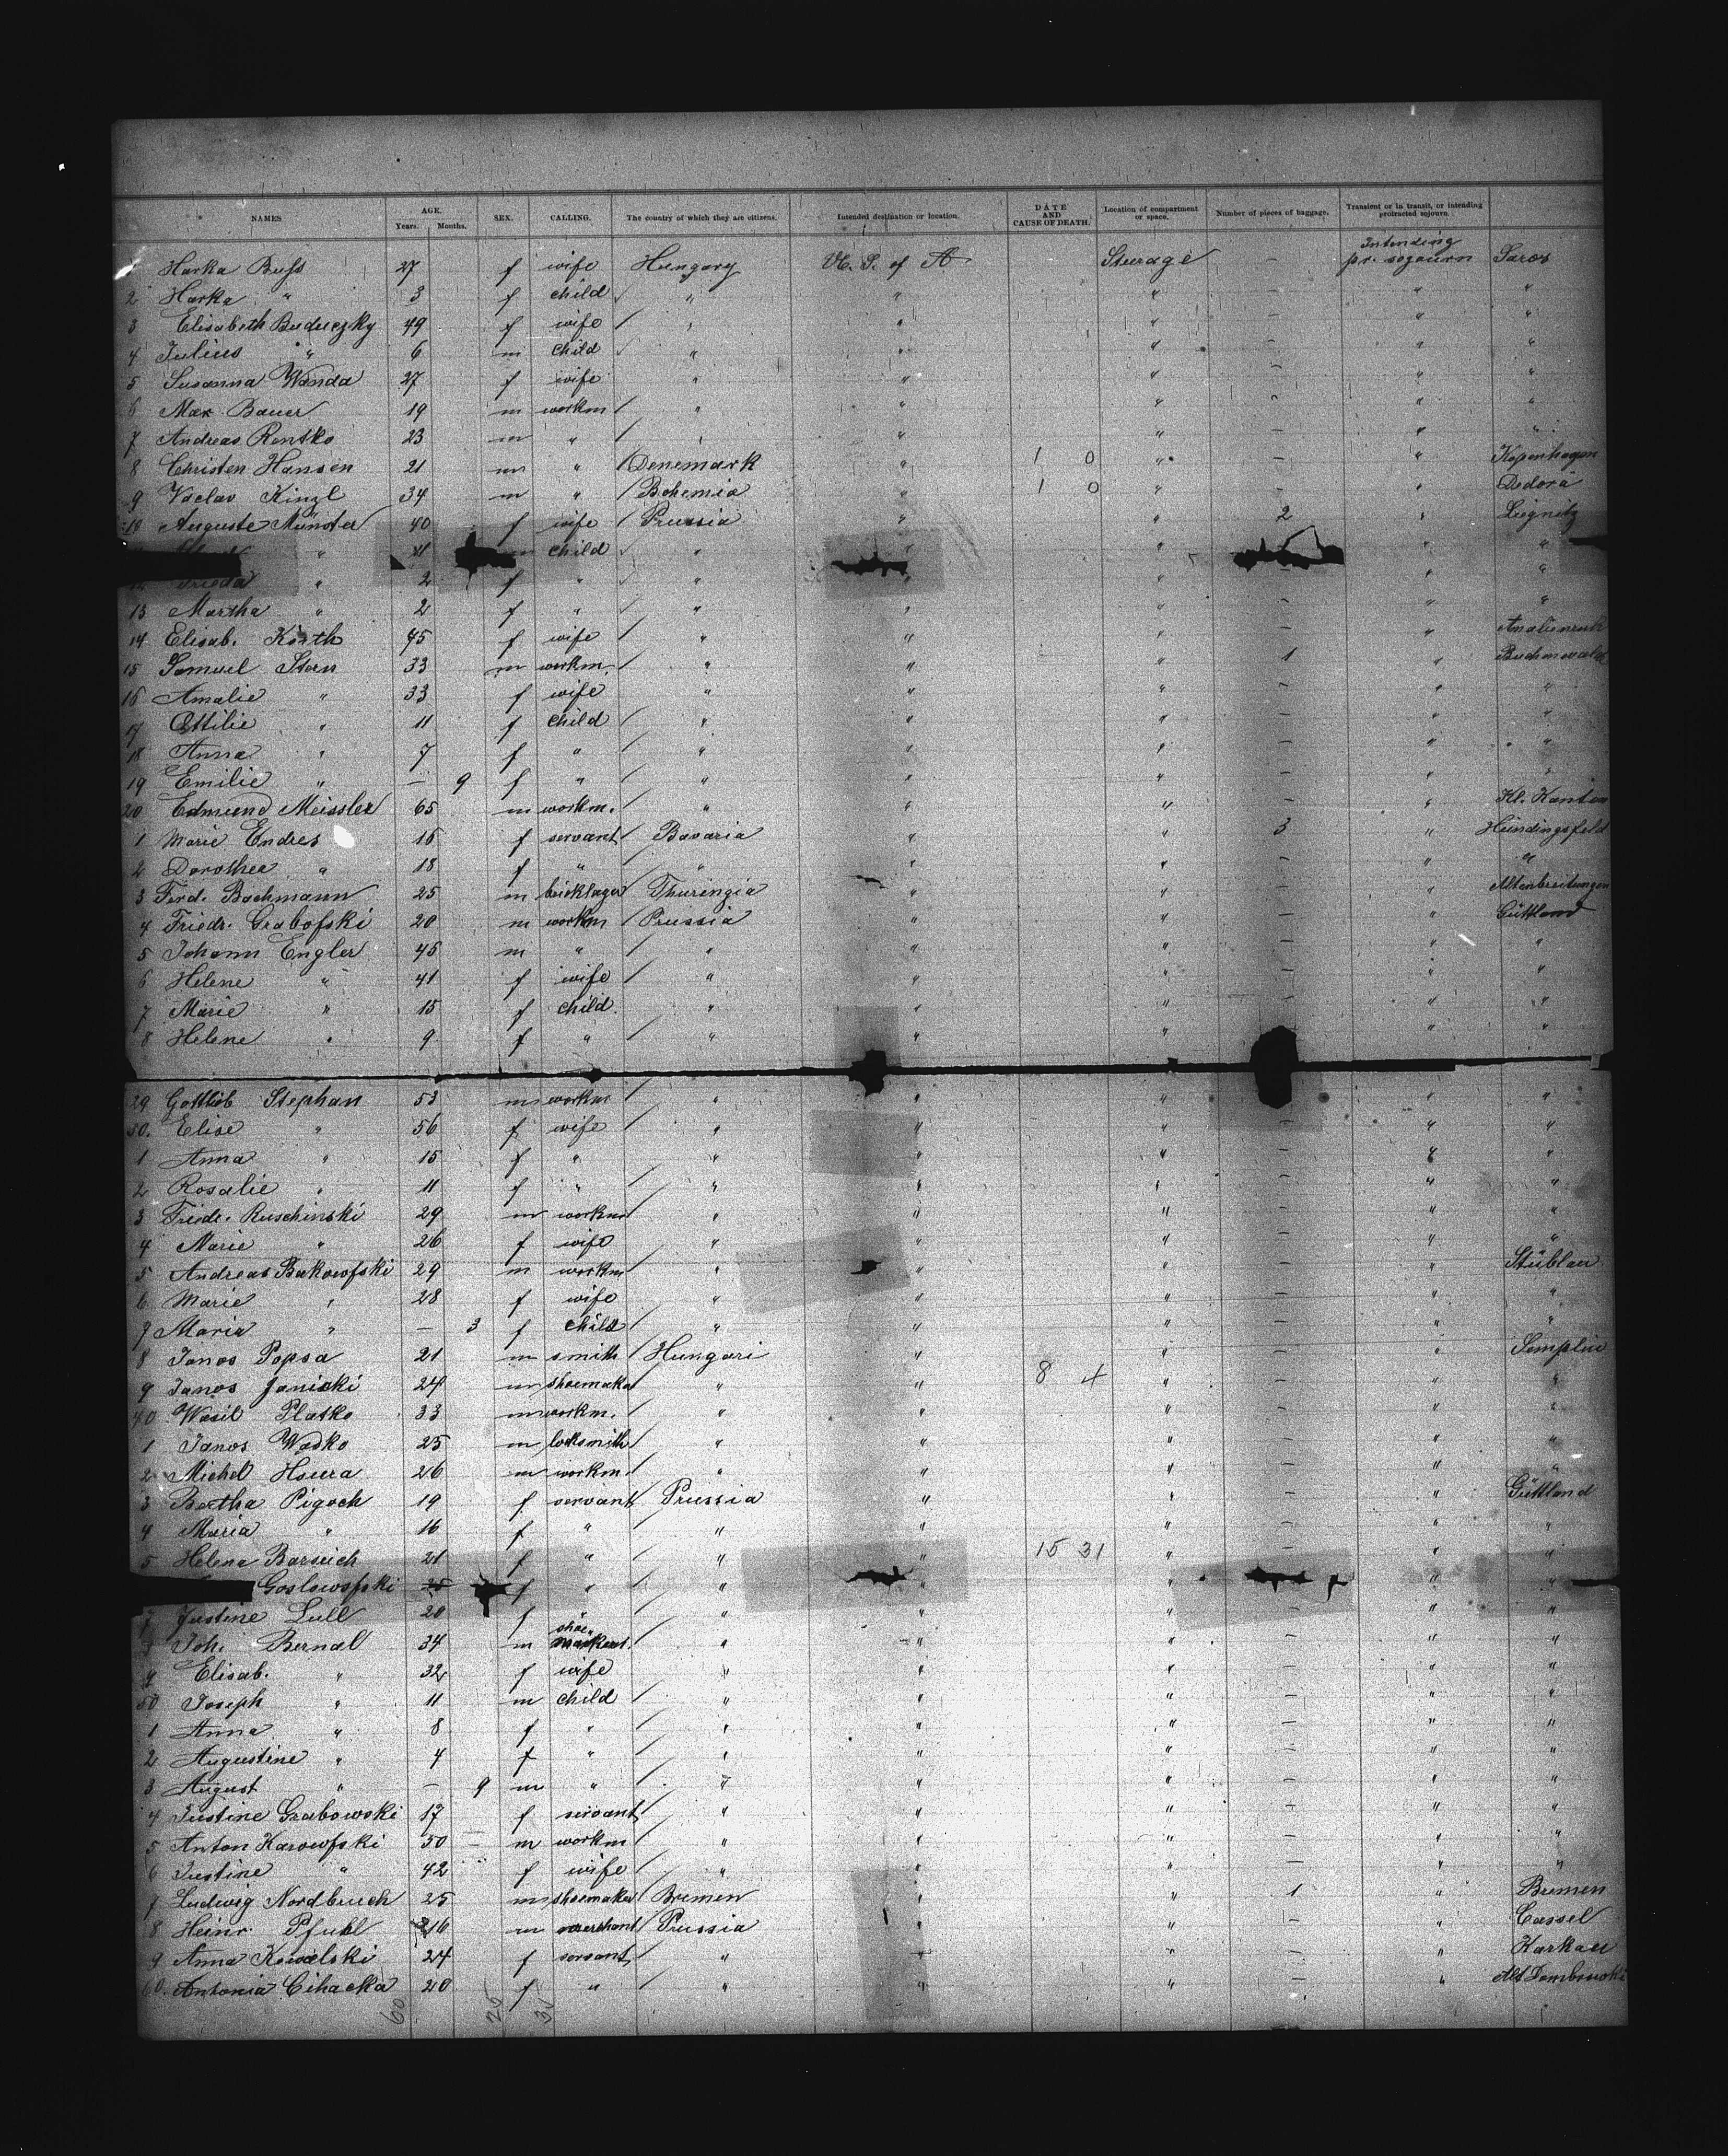 NAMES AGE. Years. Months. SEX. CALLING. The country of which they are citizens. Intended destination or location. DATE AND CAUSE OF DEATH. Location of compartment or space. Number of pieces of baggage. Transient or in transit, or intending protracted sojourn.
Harka Buss 27 f wife Hungary U. S. of A Steerage – Intending pr. sojourn Saros
2 Harka " 3 f child " " " " "
3 Elisabeth Buduczky 49 f wife " " " – " "
4 Julius " 6 m child " " " – " "
5 Susanna Wanda 27 f wife " " " – " "
6 Max Bauer 19 m workm " " " – " "
7 Andreas Rentko 23 m " " " " – " "
8 Christen Hansen 21 m " Denemark " 1 0 " – " Kopenhagen
9 Vaclav Kinzl 34 m " Bohemia " 1 0 " – " Dedora
10 Auguste Münster 40 f wife Prussia " " 2 " Liegnitz
" 11 m child " " " " "
12 Frieda " 2 f " " " " – " "
13 Martha " 2 f " " " " – " "
14 Elisab. Korth 45 f wife " " " – "
15 Samuel Stern 33 m workm. " " " 1 " Buchenwald
16 Amalie " 33 f wife " " " – " "
17 Ottilie " 11 f child " " " – " "
18 Anna " 7 f " " " " – " "
19 Emilie " – 9 f " " " " – " "
20 Edmund Meissler 65 m workm. " " " – " Kl. Kanton
1 Marie Endres 15 f servant Bavaria " " 3 " Hündingsfeld
2 Dorothea " 18 f " " " " – " "
3 Ferd. Bachmann 25 m bricklayer Thuringia " " – " Altenbreitungen
4 Friedr. Grabofski 20 m workm Prussia " " – " Güttland
5 Johann Engler 45 m " " " " – " "
6 Helene " 41 f wife " " " – " "
7 Marie " 15 f child " " " – " "
8 Helene " 9 f " " " " " "
29 Gottlieb Stephan 53 m workm " " " " "
30. Elise " 56 f wife " " " – " "
1 Anna " 15 f " " " " – " "
2 Rosalie " 11 f " " " " – " "
3 Friedr. Ruschinski 29 m workm " " " – " "
4 Marie " 26 f wife " " " – " "
5 Andreas Bakowfski 29 m workm " " " – " Stüblau
6 Marie " 28 f wife " " " – " "
7 Maria " – 3 f child " " " – " "
8 Janos Popsa 21 m smith Hungari " " – " Semplin
9 Janos Janiski 24 m shoemaker " " 8 4 " – " "
40 Wasil Platko 33 m workm. " " " – " "
1 Janos Wasko 25 m locksmith " " " – " "
2 Michel Hsura 26 m workm. " " " – " "
3 Bertha Pigoch 19 f servant Prussia " " – " Güttland
4 Maria " 16 f " " " " – " "
5 Helena Barseich 21 f " " " 15 31 " – " "
Goslowsfski 25 f " " " " " "
7 Justine Lull 20 f " " " – " "
8 Joh. Bernal 34 m shoemaker " " " – " "
9 Elisab. " 32 f wife " " " " "
50 Joseph " 11 m child " " " – " "
1 Anna " 8 f " " " " – " "
2 Augustine " 4 f " " " " – " "
3 August " – 9 m " " " " – " "
4 Justine Grabowski 17 f servant " " " – " "
5 Anton Karowfski 50 m workm " " " – " "
6 Justine " 42 f wife " " " – " "
7 Ludwig Nordbruch 25 m shoemaker Bremen " " 1 " Bremen
8 Heinr. Pfuhl 26 m merchant Prussia " " – " Cassel
9 Anna Kowalski 24 f servant " " " – " Karkau
60. Antonia Cihacka 20 f " " " " – " Alt Dombrowski
60 25 35